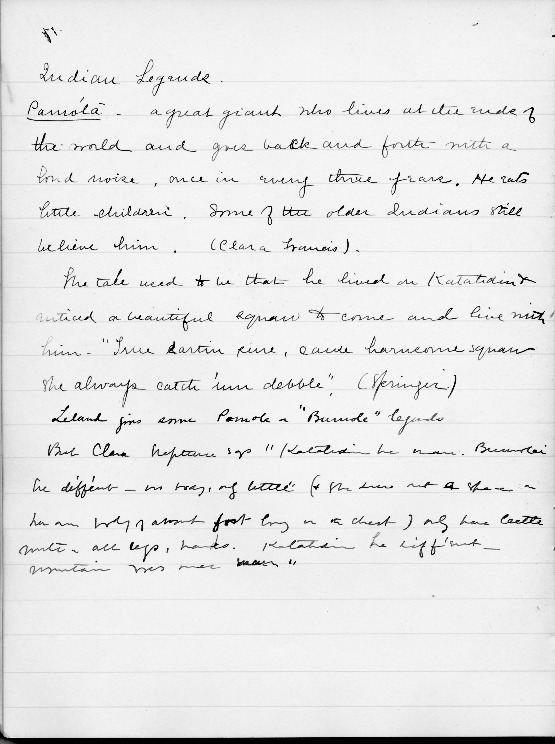 Indian Legends.
Pamola - a great giant who lives at the ends of
the world and goes back and forth with a
loud noise, once in every three years. He eats
little children. Some of the older Indians still
believe him. (Clara Francis).
The tale used to be that he lived on Katahdin &
noticed a beautiful squaw to come and live with
him - "True sartin sure, handsome squaw
she always catch 'um debble". (Springer)
Leland gives some Pamola or "Bumole" legends
But Clara Neptune says "Katahdin be man. Bumole
be different - no body, only little (&
body of about foot long or a chest) only have little
all legs, hands. Katahdin he diff'ent -
mountain was once man"